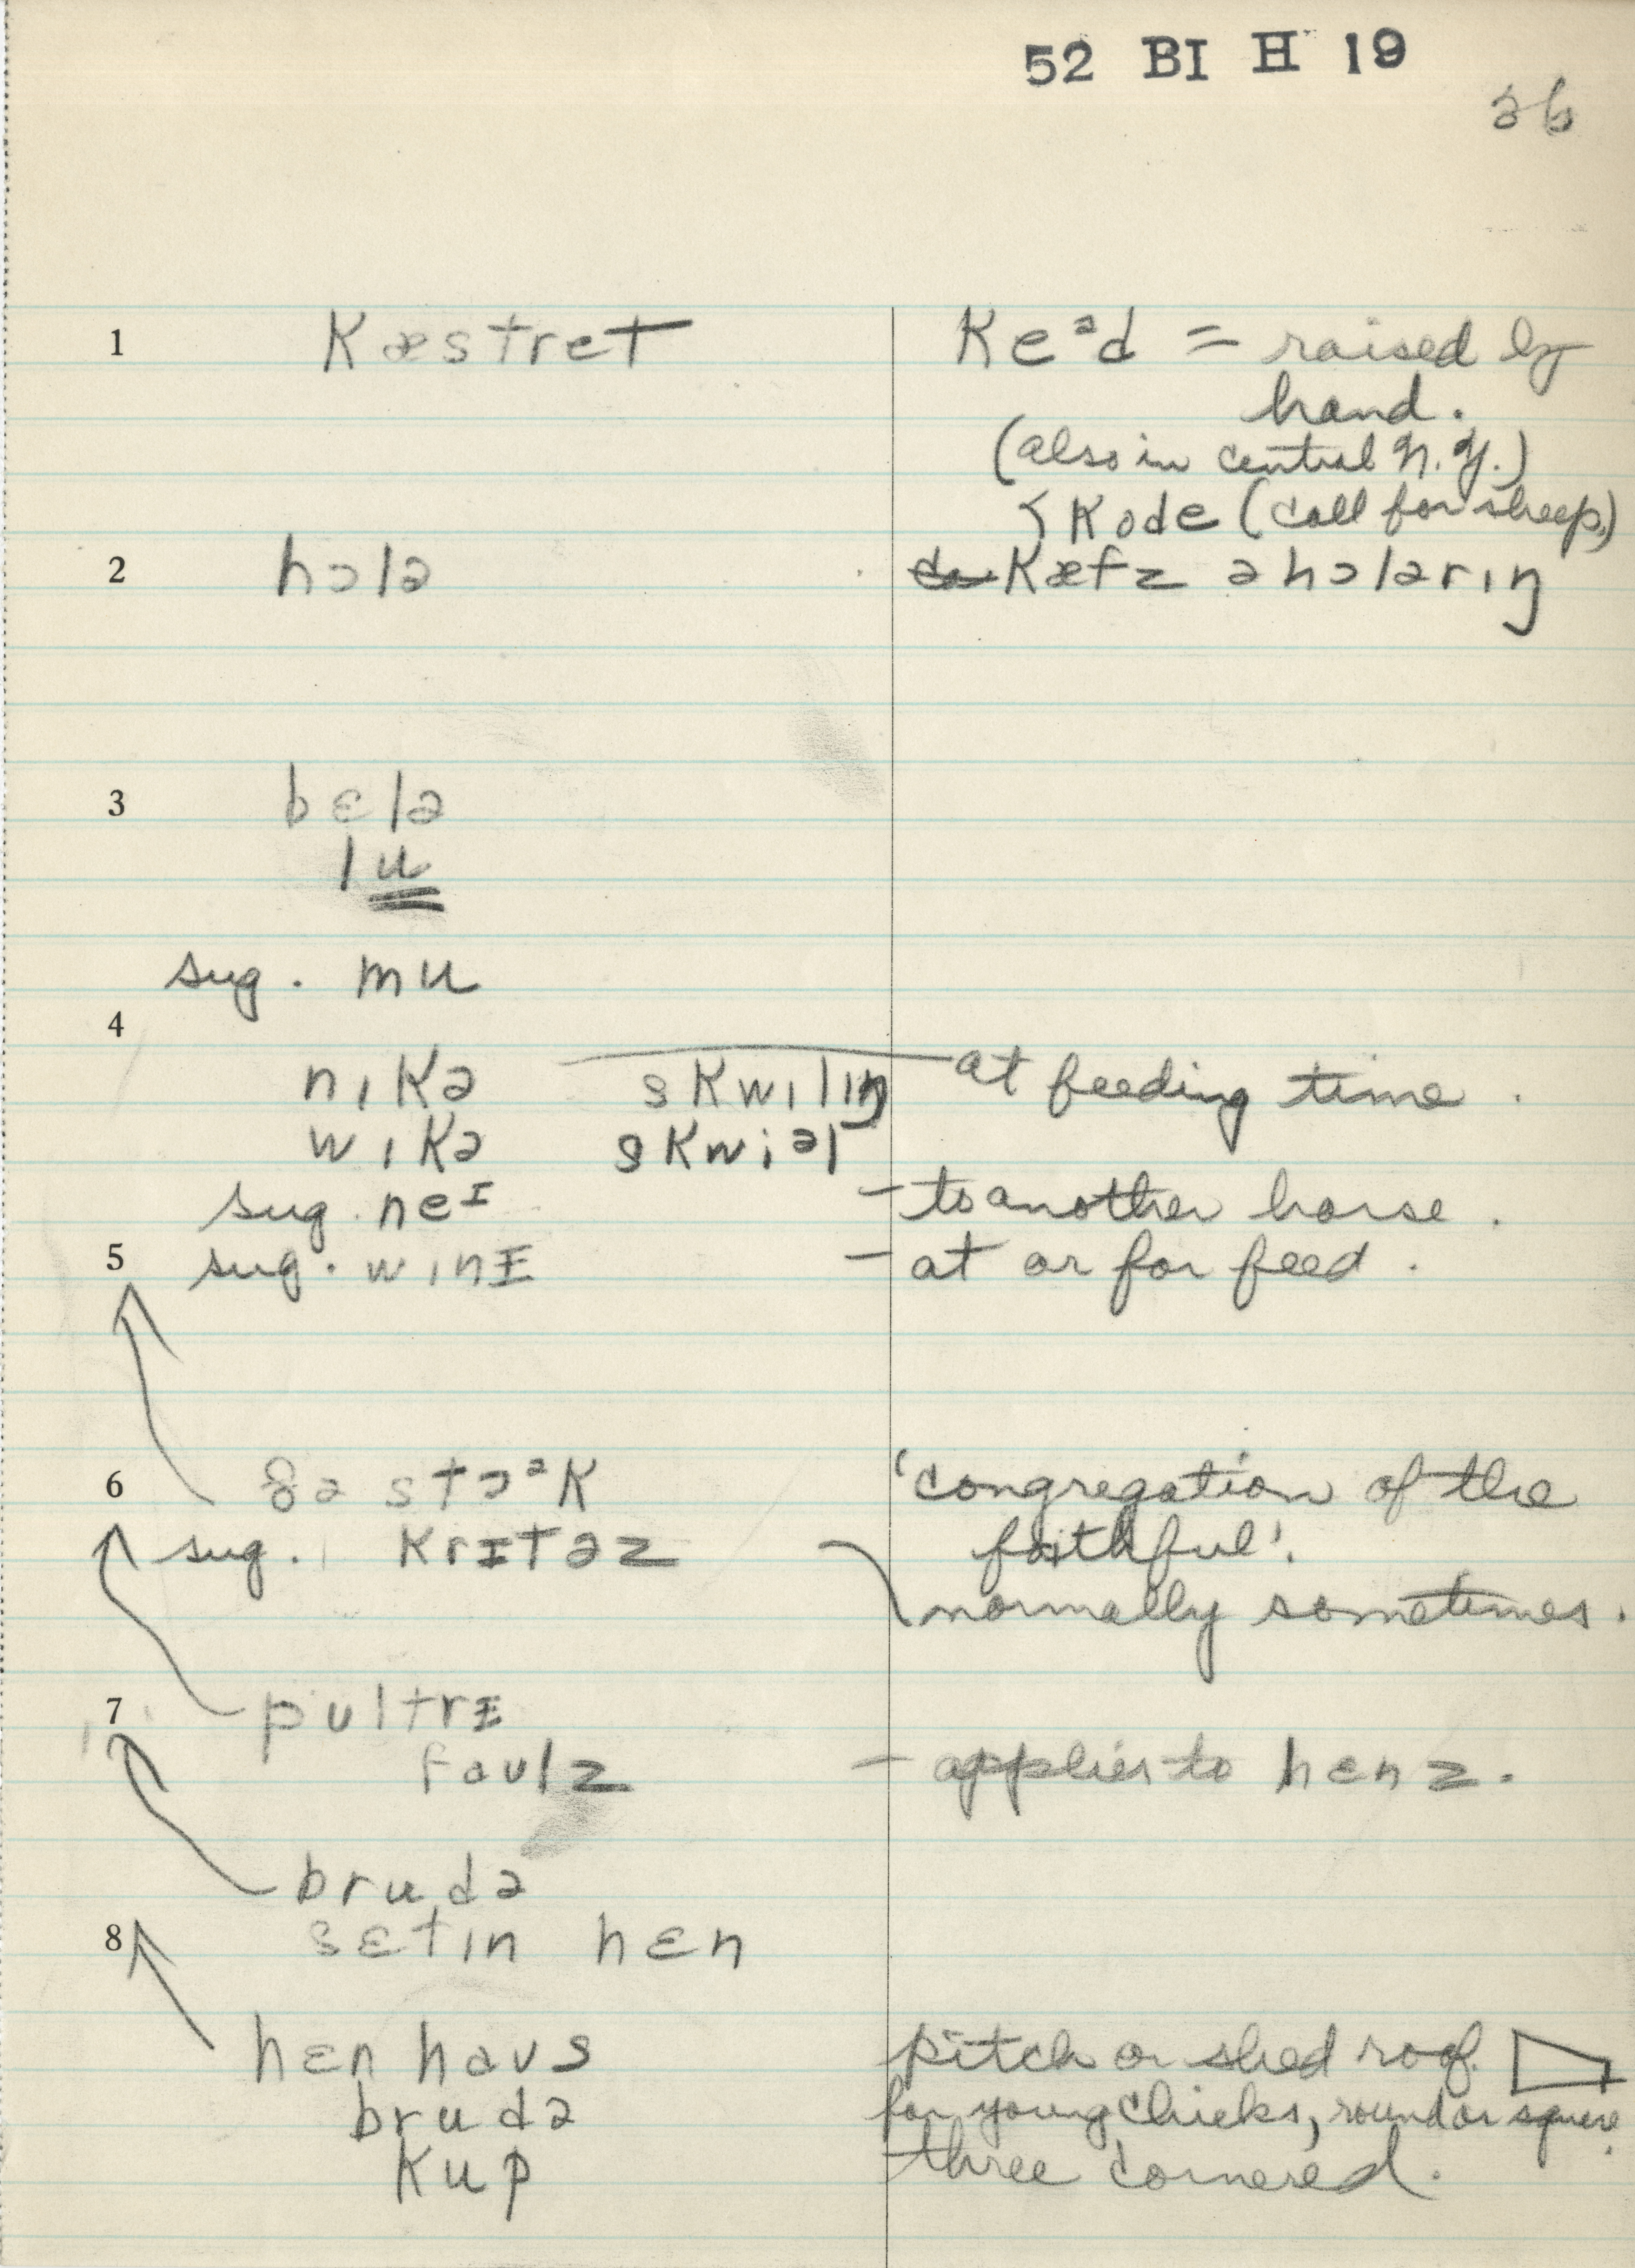 52 BI H 19
36
1 kæstret ke ᵊd = raised by
hand.
(also in central N.Y.)
< kode (call for sheep)
2 hɔlə kæfz ə hɔlərɪŋ
3 bɛlə
lu
sug. mu
4
nɪkə skwɪlɪŋ at feeding time.
wɪkə skwiəl
sug. neɪ – to another horse.
5 sug. wɪnɪ – at or for feed.
6 ðə stɔᵊk 'congregation of the
sug. krɪtəz faithful'.
normally sometimes.
7 pʊltrɪ
faʊlz – applies to hɛnz.
brudə
8 sɛtɪn hɛn
hɛn haʊs pitch or shed roof.
brudə for young chicks, round or square.
kup three cornered.